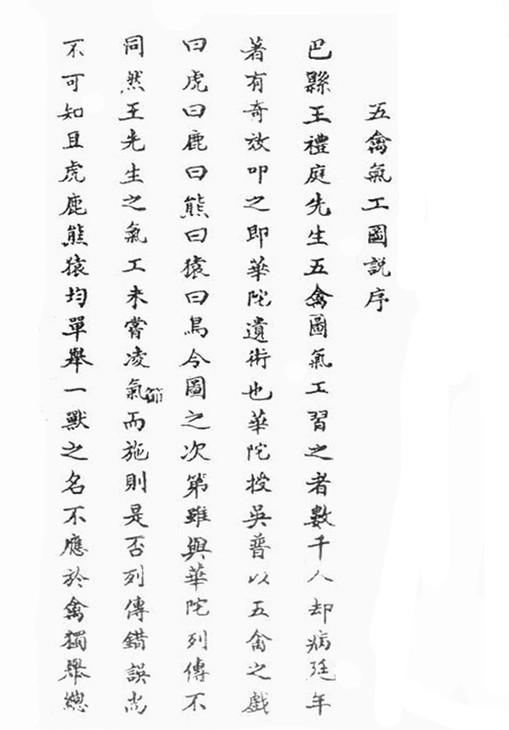 五禽氣工圖説序
巴縣王禮庭先生五禽圖氣工習之者數千人却病延年
著有奇效叩之即華陀遺術也華陀授吳普以五禽之戲
曰虎曰鹿曰熊曰猿曰鳥今圖之次第雖與華陀列傳不
同然王先生之氣工未嘗凌氣節而施則是否列傳錯誤尚
不可知且虎鹿熊猿均單舉一獸之名不應於禽獨舉總